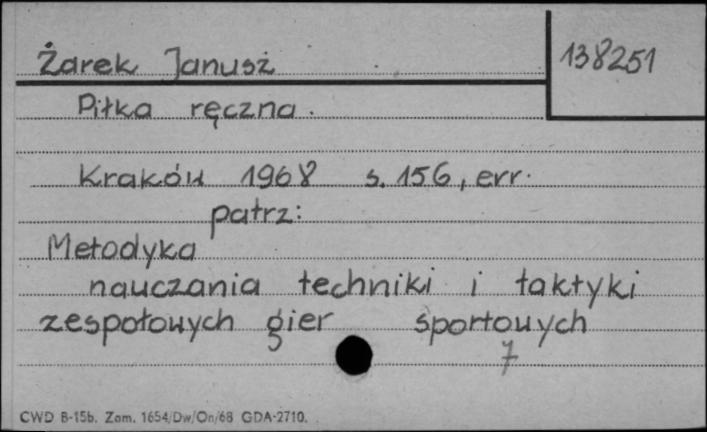 Żarek Janusz
138251
Piłka ręczna.
Kraków 1968 s. 156, err.
patrz:
Metodyka
nauczania techniki i taktyki
zespołowych gier sportowych
7
CWD B-15b. Zam. 1654/Dw/On/68 GDA-2710.